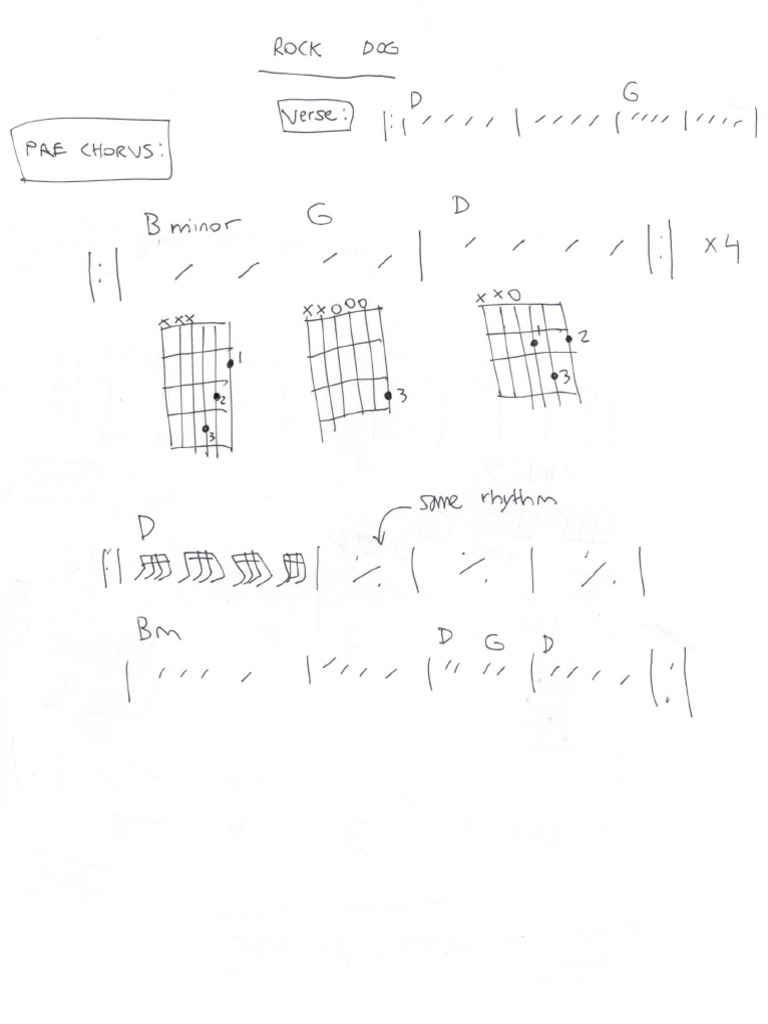 ROCK DOG
Verse: D G
PRE CHORUS:
B minor G D
x4
xxx xx0000 xx0
1 1 2
2 3 3
3
same rhythm
D
Bm D G D